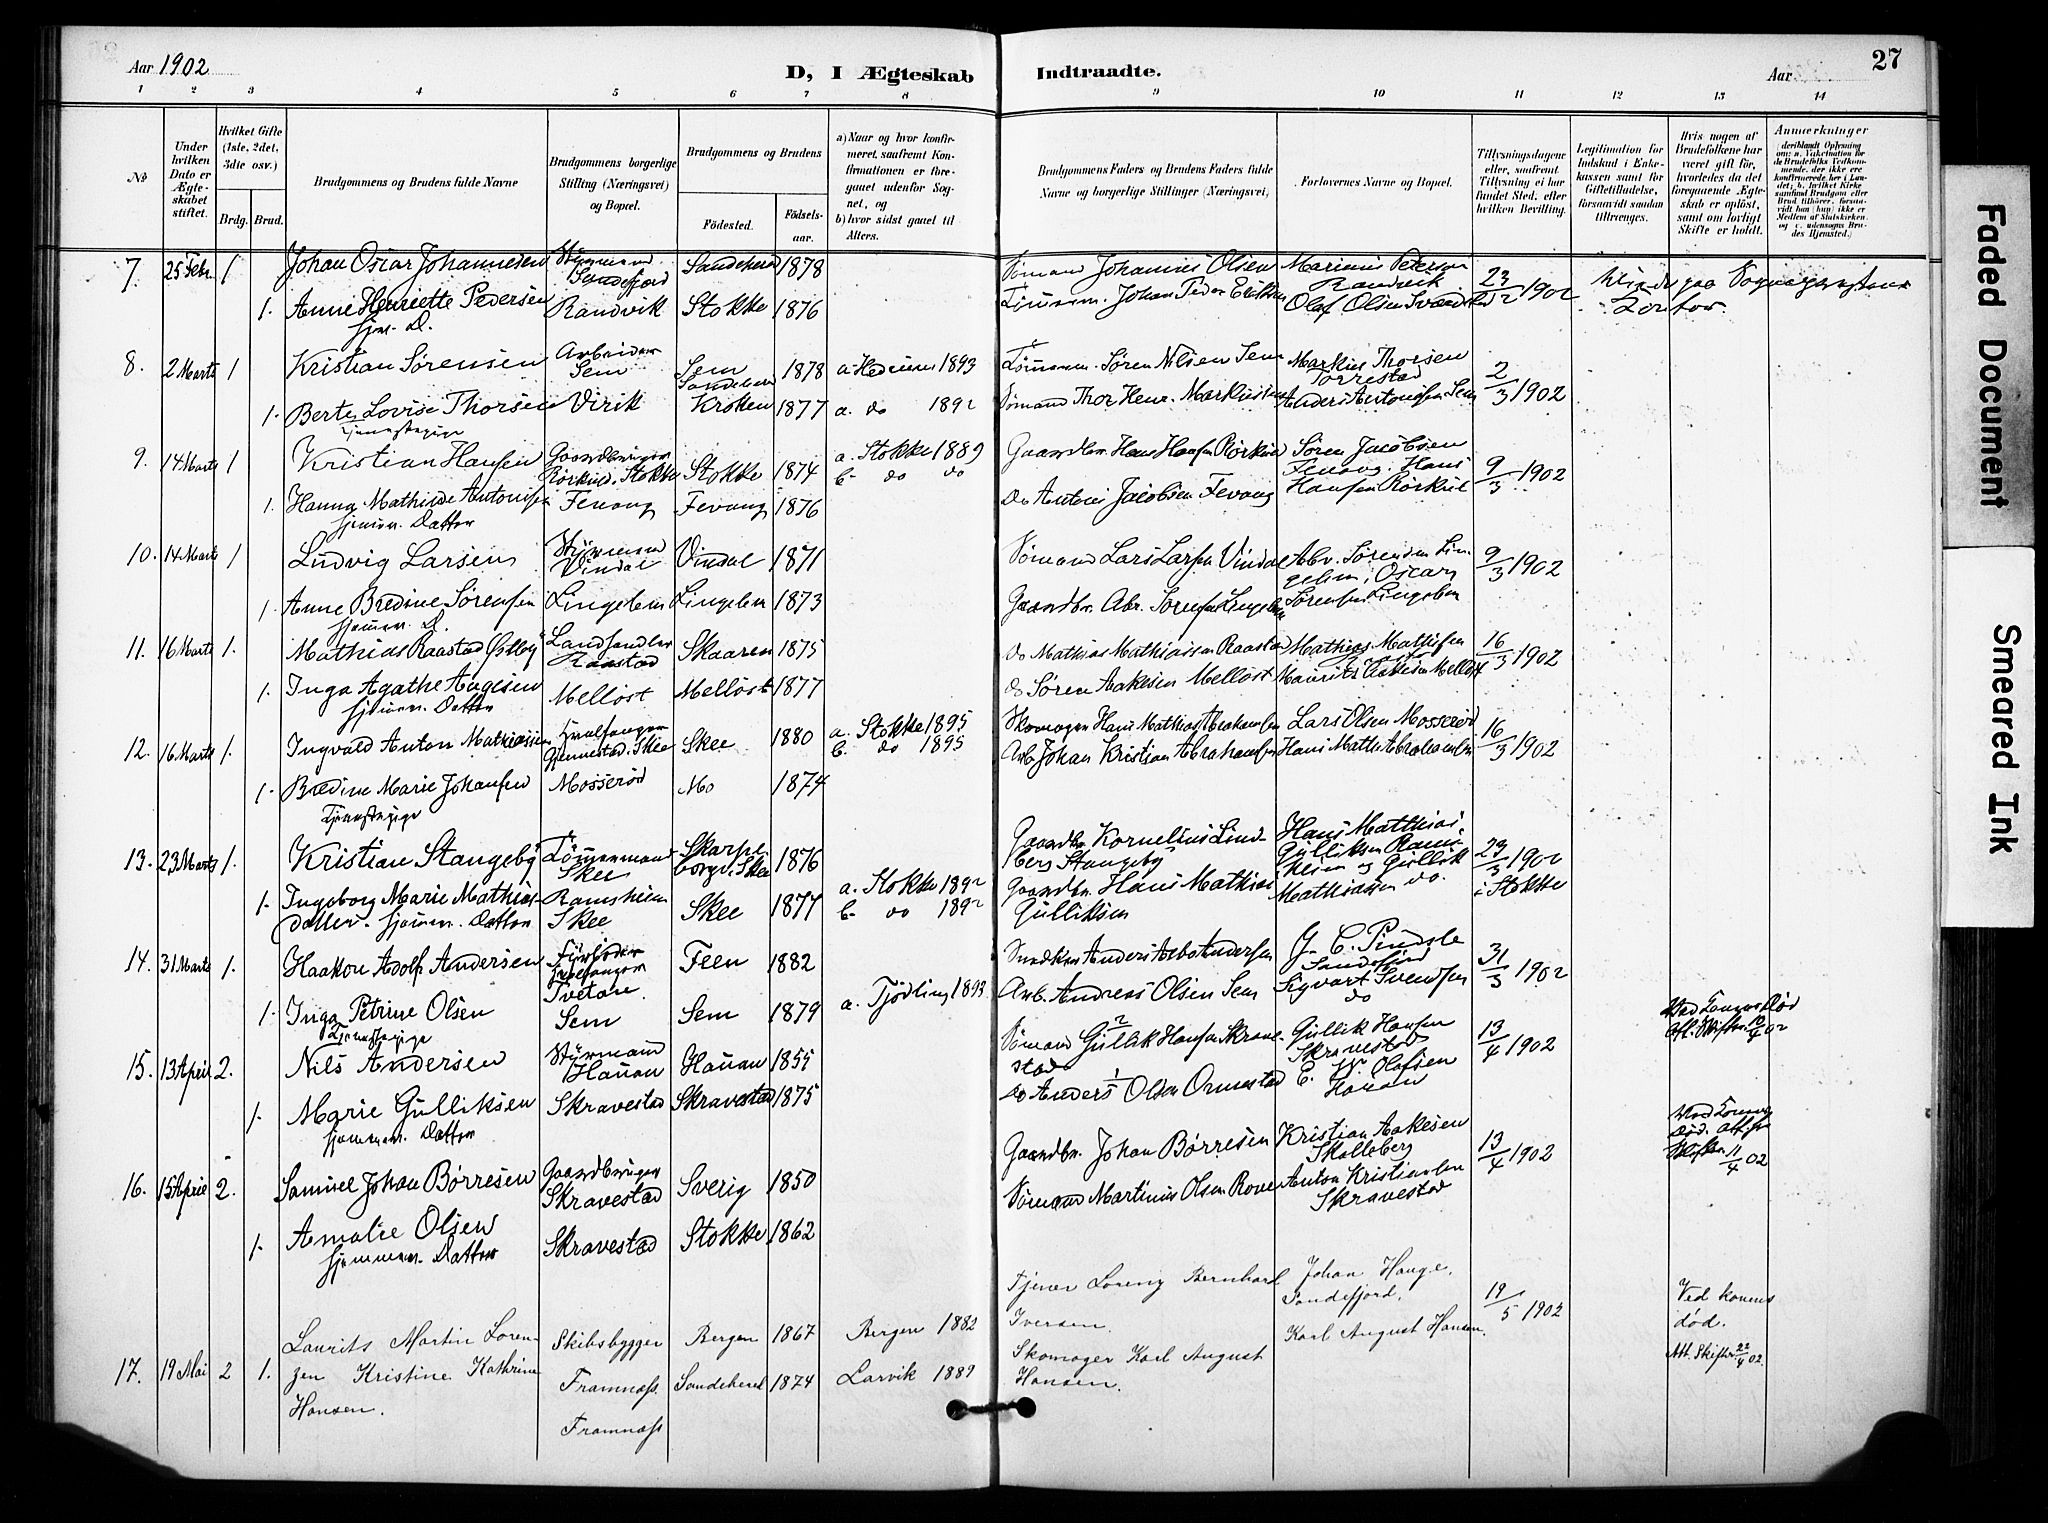 Aar 1902
D, I Ægteskab
Indtraadte.
Aar
27
1 2 3 4 5 6 7 8 9 10 11 12 13 14
No
Under hvilken Dato er Ægteskabet stiftet.
Hvilket Gifte (1ste, 2det, 3die osv.)
Brdg. Brud.
Brudgommens og Brudens fulde Navne
Brudgommens borgerlige Stilling (Næringsvei) og Bopæl.
Brudgommens og Brudens
Fødested. Fødselsaar.
a) Naar og hvor konfirmeret, saafremt Konfirmationen er foregaaet udenfor Sognet, og
b) hvor sidst gaaet til Alters.
Brudgommens Faders og Brudens Faders fulde Navne og borgerlige Stillinger (Næringsvei)
Forlovernes Navne og Bopæl.
Tillysningsdagene eller, saafremt Tillysning ei har fundet Sted, efter hvilken Bevilling.
Legitimation for Indskud i Enkekassen samt for Giftetilladelse, forsaavidt saadan tiltrænges.
Hvis nogen af Brudefolkene har været gift før, hvorledes da det foregaaende Ægteskab er opløst, samt om lovligt Skifte er holdt.
Anmærkninger
7. 25 Febr 1 Johan Oscar Johannesen Styrmand Sandefjord Sandeherred 1878 Sømand Johannes Olsen Marinius Pedersen Randvik 23/2 1902
1. Anne Henriette Pedersen Randvik Stokke 1876 Tømmerm. Johan Peder Eriksen Olaf Olsen
hjem. D.
8. 2 Marts 1 Kristian Sørensen Arbeider Sem Sem 1878 a. 1893 Tømmerm. Søren Nilsen Sem Markus Thorsen Torrestad 2/3 1902
1. Berte Lovise Thorsen Virik Sandeherred Kroken 1877 a. do 1892 Sømand Thor Henr. Markussen Anders Antonsen Sem
Tjenestepige
9. 14 Marts 1 Kristian Hansen Gaardbruger Rørkul, Stokke Stokke 1874 a. Stokke 1889 b. do do Gaardbr. Hans Hansen Rørkul Søren Jacobsen Fevang, Hans Hansen Rørkul 9/3 1902
1. Hanna Mathilde Antonisen Fevang Fevang 1876 do Antoni Jacobsen Fevang
hjemm. Datter
10. 14 Marts 1 Ludvig Larsen Styrmand Vindal Vindal 1871 Sømand Lars Larsen Vindal Abr. Sørensen Lingelem, Oscar Sørensen Lingelem 9/3 1902
1. Anne Bredine Sørensen Lingelem Lingelem 1873 Gaardbr. Abr. Sørensen Lingelem
hjemm. D.
11. 16 Marts 1. Mathias Raastad Østby Landhandler Raastad Skaaren 1875 do Mathias Mathiassen Raastad Mathias Mathisen 16/3 1902
1. Inga Agathe Aagesen Melløst Melløst 1877 do Søren Aakesen Melløst Mauritz Aakesen Melløst
hjemm. Datter
12. 16 Marts 1. Ingvald Anton Mathiassen Hvalfanger Gjennestad, Skee Skee 1880 a. Stokke 1895 b. do 1895 Skomager Hans Mathias Abrahamsen Lars Olsen Mosserød 16/3 1902
1. Bredine Marie Johansen Mosserød Mo 1874 Arb. Johan Kristian Abrahamsen Hans Math. Abrahamsen
Tjenestepige
13. 23 Marts 1. Kristian Stangeby Tømmermand Skee Skarpsborgd. Skee 1876 Gaardbr. Kornelius Lindberg Stangeby Hans Matthias Gulliksen Ramshiem og Gullik Mathiassen do. 23/3 1902 i Stokke
1. Ingeborg Marie Mathiasdatter hjemm. Datter Ramshiem Skee Skee 1877 a. Stokke 1892 b. do 1892 Gaardbr. Hans Mathias Gulliksen
14. 31 Marts 1. Haakon Adolf Andersen Fyrbøder Hvalfanger Tvetan Feen 1882 Snedker Anders Aabo Andersen G. C. Pindsle Sandefjord 31/3 1902
1. Inga Petrine Olsen Sem Sem 1879 a. Tjødling 1893 Arb. Andreas Olsen Sem Sigvart Svendsen do
Tjenestepige
15. 13 April 2. Nils Andersen Styrmand Hauan Hauan 1855 Sømand Gullik Hansen Skravestad Gullik Hansen Skravestad 13/4 1902 Ved Konens Død Att. Skiften 10/4 02
1. Marie Gulliksen Skravestad Skravestad 1875 do Anders Olsen Ormestad E. W. Olafsen Hauan
hjemmev. Datter
16. 15 April 2. Samuel Johan Børresen Gaardbruger Skravestad Sverig 1850 Gaardbr. Johan Børresen Kristian Aakesen Skalleberg 13/4 1902 Ved Konens død. Att. fr Skiften 11/4 02
1. Amalie Olsen Skravestad Stokke 1862 Sømand Martinus Olsen Rove Anton Kristiansen Skravestad
hjemmev. Datter
17. 19 Mai 2 1. Laurits Martin Lorenzen Skibsbygger Framnæss Bergen 1867 Bergen 1882 Tjener Lorenz Bernhard Iversen. Johan Hauge, Sandefjord. 19/5 1902 Ved konens død. Att. Skiften 22/4 02.
Kristine Kathrine Hansen. Framnæss Sandeherred 1874 Larvik 1889 Skomager Karl August Hansen. Karl August Hansen.
Faded Document
Smeared Ink